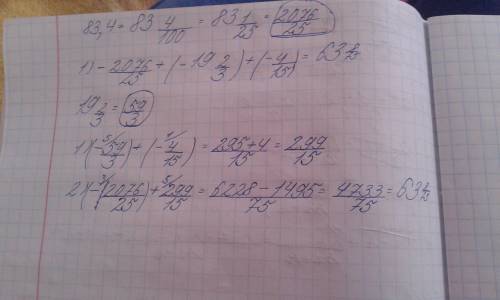 83,4 = 83 4/100 = 83 1/25 = 2076/25
1) - 2076/25 + (-19 2/3) + (-4/15) = 63
19 2/3 = 59/3
1) (-59/3) + (-4/15) = 295+4/15 = 299/15
2) (-2076/25) + 299/15 = 6228-1495/75 = 4733/75 = 63